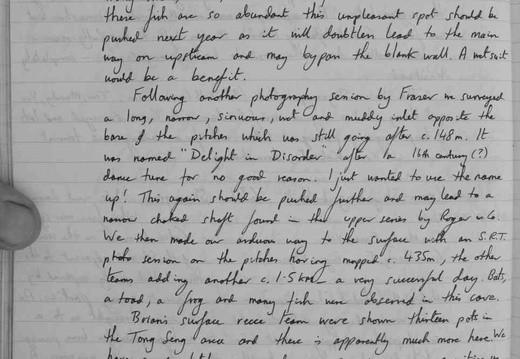 these fish are so abundant this unpleasant spot should be
pushed next year as it will doubtless lead to the main
way on upstream and may bypass the blank wall. A wetsuit
would be a benefit.
Following another photography session by Frazer we surveyed
a long, narrow, sinuous, wet and muddy inlet opposite the
base of the pitches which was still going after c. 148m. It
was named "Delight in Disorder" after a 16th century (?)
dance tune for no good reason. I just wanted to use the name
up! This again should be pushed further and may lead to a
narrow choked shaft found in the upper series by Roger & Co.
We then made our arduous way to the surface with an S.R.T.
photo session on the pitches having mapped c. 435m, the other
teams adding another c. 1.5km - a very successful day. Bats,
a toad, a frog and many fish were observed in this cave.
Brian's surface recce team were shown thirteen pots in
the Tong Seng area and there is apparently much more here. We